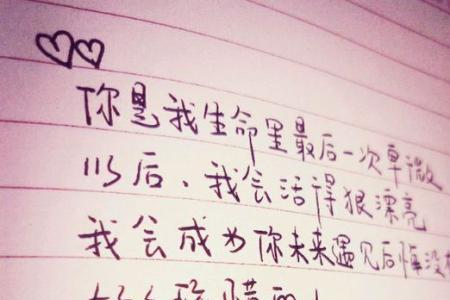 你是我生命里最后一次卑微
以后、我会活得狠漂亮
我会成为你未来遇见后悔没